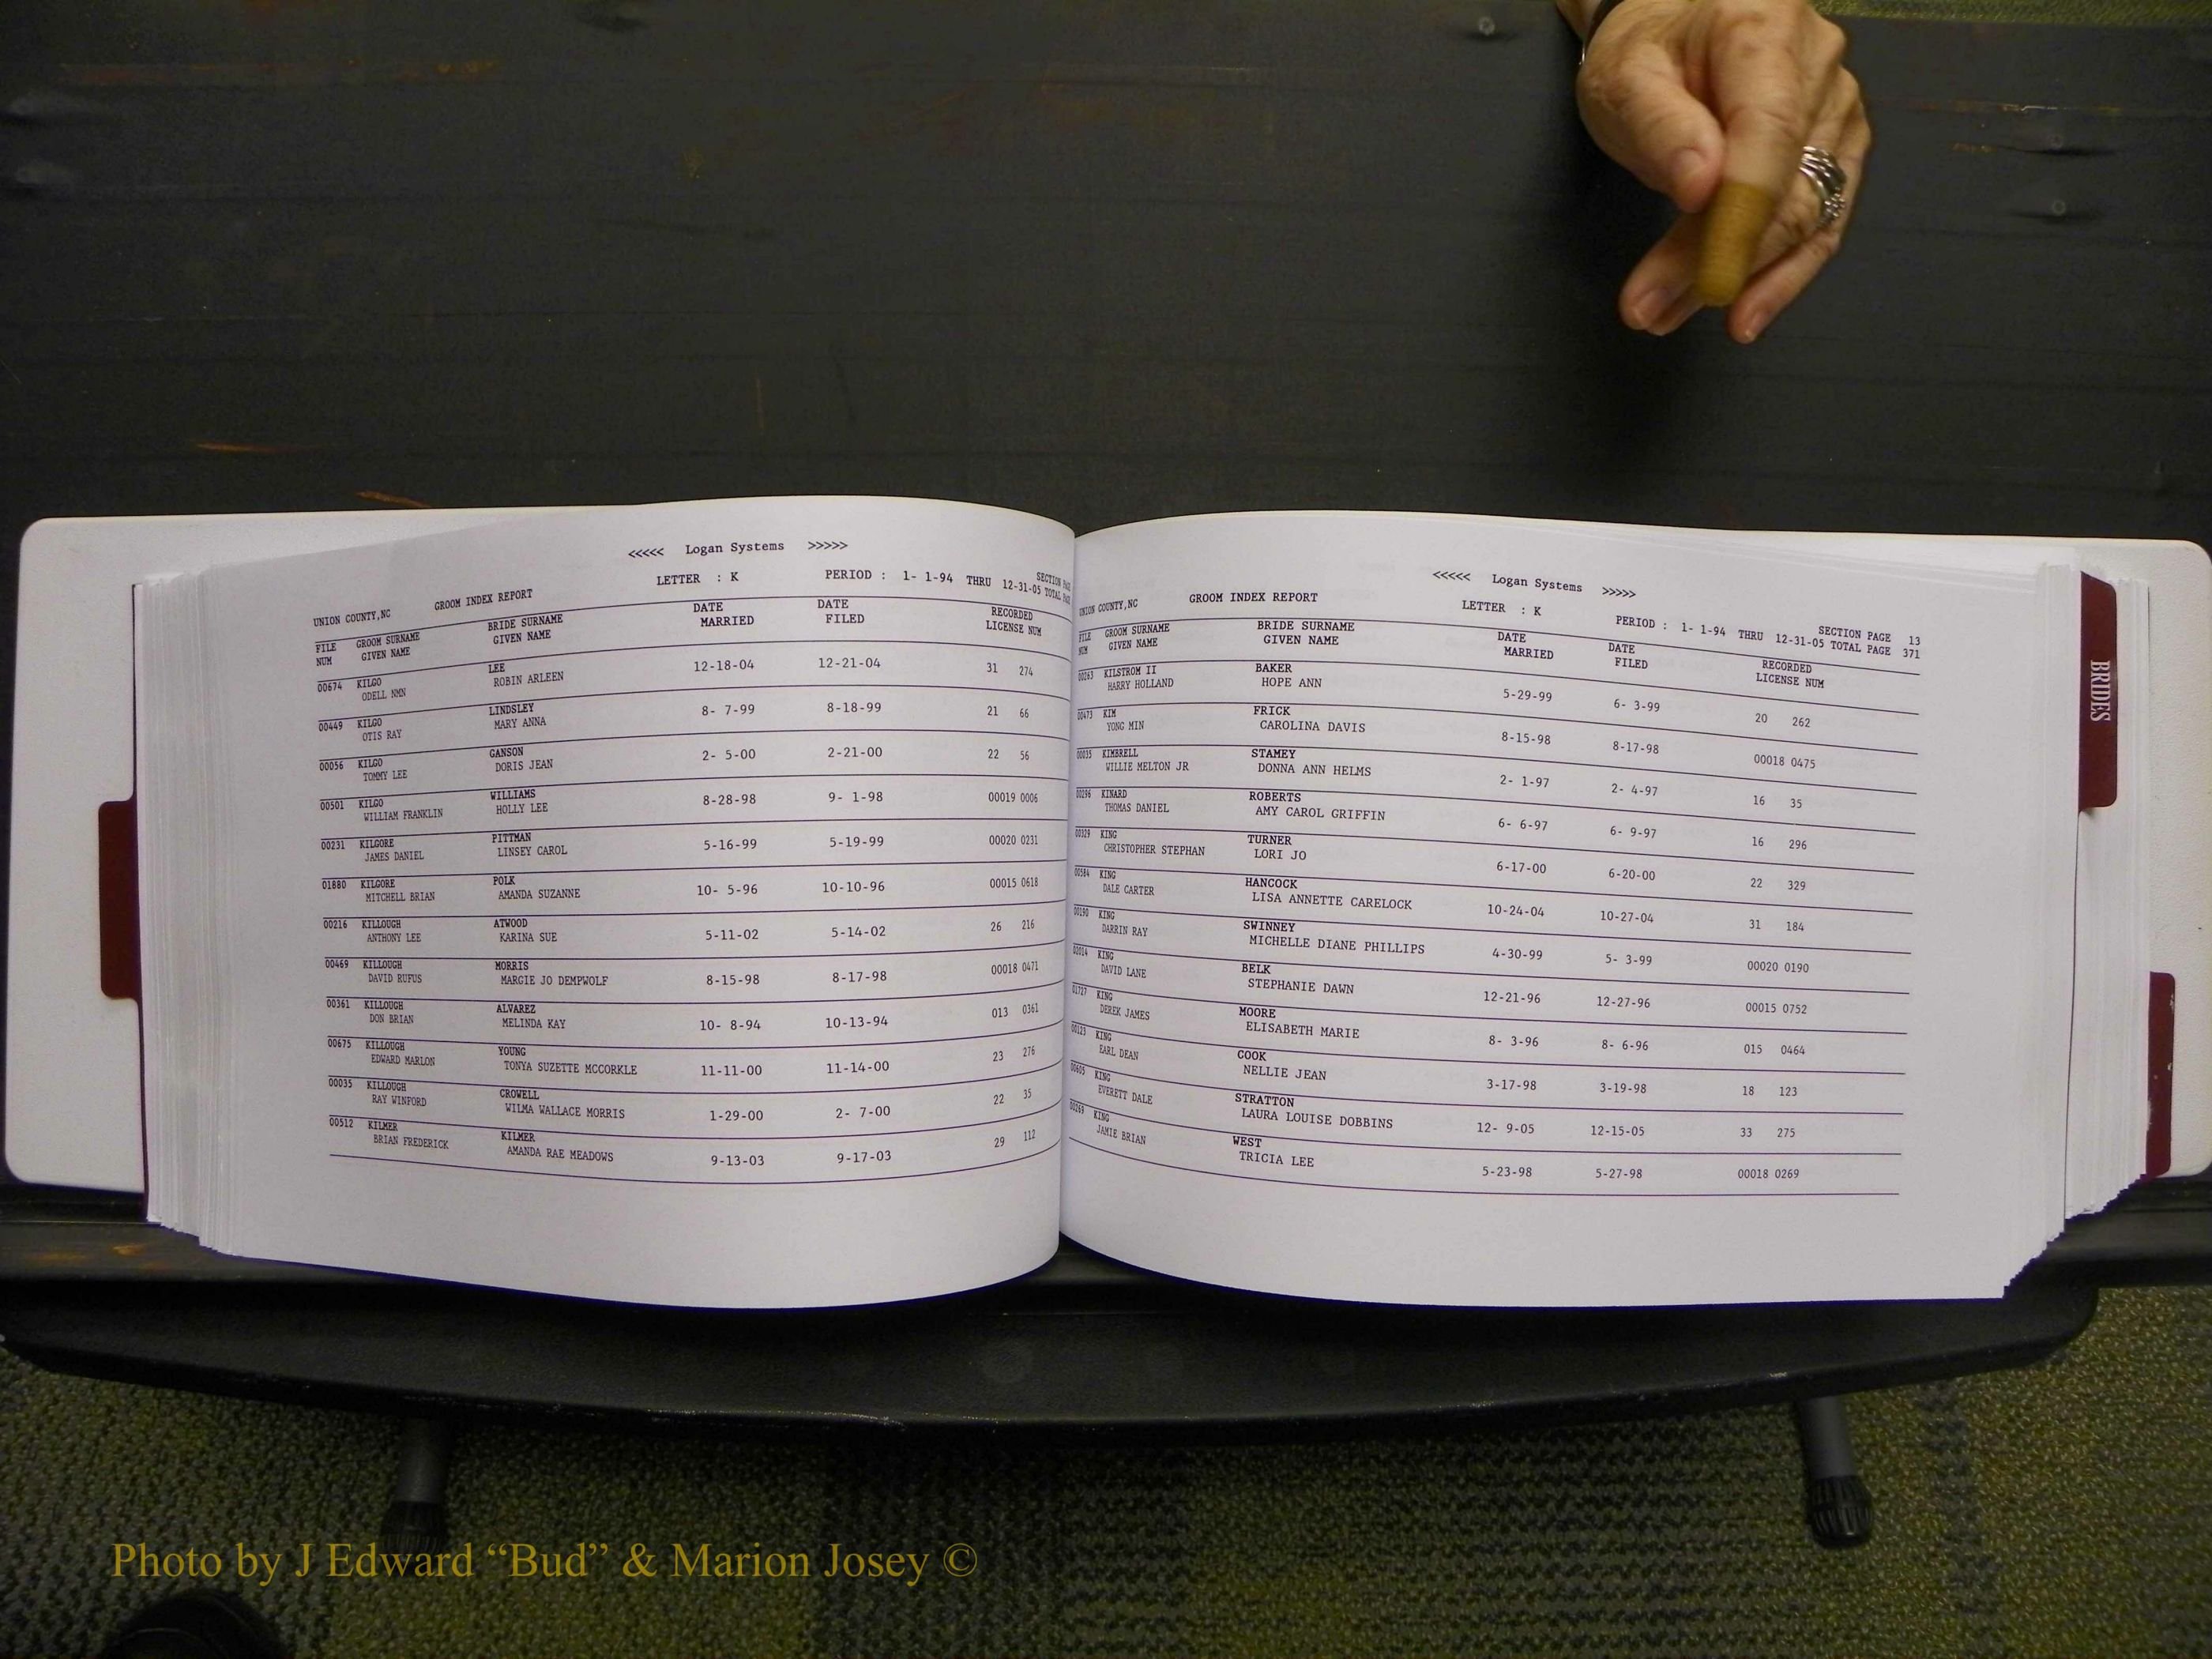 <<<<< Logan Systems >>>>>
UNION COUNTY,NC GROOM INDEX REPORT LETTER : K PERIOD : 1- 1-94 THRU 12-31-05 SECTION TOTAL
FILE GROOM SURNAME BRIDE SURNAME DATE DATE RECORDED
NUM GIVEN NAME GIVEN NAME MARRIED FILED LICENSE NUM
00674 KILGO LEE 12-18-04 12-21-04 31 274
ODELL NMN ROBIN ARLEEN
00449 KILGO LINDSLEY 8- 7-99 8-18-99 21 66
OTIS RAY MARY ANNA
00056 KILGO GANSON 2- 5-00 2-21-00 22 56
TOMMY LEE DORIS JEAN
00501 KILGO WILLIAMS 8-28-98 9- 1-98 00019 0006
WILLIAM FRANKLIN HOLLY LEE
00231 KILGORE PITTMAN 5-16-99 5-19-99 00020 0231
JAMES DANIEL LINSEY CAROL
01880 KILGORE POLK 10- 5-96 10-10-96 00015 0618
MITCHELL BRIAN AMANDA SUZANNE
00216 KILLOUGH ATWOOD 5-11-02 5-14-02 26 216
ANTHONY LEE KARINA SUE
00469 KILLOUGH MORRIS 8-15-98 8-17-98 00018 0471
DAVID RUFUS MARGIE JO DEMPWOLF
00361 KILLOUGH ALVAREZ 10- 8-94 10-13-94 013 0361
DON BRIAN MELINDA KAY
00675 KILLOUGH YOUNG 11-11-00 11-14-00 23 276
EDWARD MARLON TONYA SUZETTE MCCORKLE
00035 KILLOUGH CROWELL 1-29-00 2- 7-00 22 35
RAY WINFORD WILMA WALLACE MORRIS
00512 KILMER KILMER 9-13-03 9-17-03 29 112
BRIAN FREDERICK AMANDA RAE MEADOWS
<<<<< Logan Systems >>>>>
UNION COUNTY,NC GROOM INDEX REPORT LETTER : K PERIOD : 1- 1-94 THRU 12-31-05 SECTION PAGE 13
TOTAL PAGE 371
FILE GROOM SURNAME BRIDE SURNAME DATE DATE RECORDED
NUM GIVEN NAME GIVEN NAME MARRIED FILED LICENSE NUM
00263 KILSTROM II BAKER 5-29-99 6- 3-99 20 262
HARRY HOLLAND HOPE ANN
00473 KIM FRICK 8-15-98 8-17-98 00018 0475
YONG MIN CAROLINA DAVIS
00035 KIMBRELL STAMEY 2- 1-97 2- 4-97 16 35
WILLIE MELTON JR DONNA ANN HELMS
00296 KINARD ROBERTS 6- 6-97 6- 9-97 16 296
THOMAS DANIEL AMY CAROL GRIFFIN
00329 KING TURNER 6-17-00 6-20-00 22 329
CHRISTOPHER STEPHAN LORI JO
00584 KING HANCOCK 10-24-04 10-27-04 31 184
DALE CARTER LISA ANNETTE CARELOCK
00190 KING SWINNEY 4-30-99 5- 3-99 00020 0190
DARRIN RAY MICHELLE DIANE PHILLIPS
02014 KING BELK 12-21-96 12-27-96 00015 0752
DAVID LANE STEPHANIE DAWN
01727 KING MOORE 8- 3-96 8- 6-96 015 0464
DEREK JAMES ELISABETH MARIE
00123 KING COOK 3-17-98 3-19-98 18 123
EARL DEAN NELLIE JEAN
00605 KING STRATTON 12- 9-05 12-15-05 33 275
EVERETT DALE LAURA LOUISE DOBBINS
00269 KING WEST 5-23-98 5-27-98 00018 0269
JAMIE BRIAN TRICIA LEE
BRIDES
Photo by J Edward “Bud” & Marion Josey ©